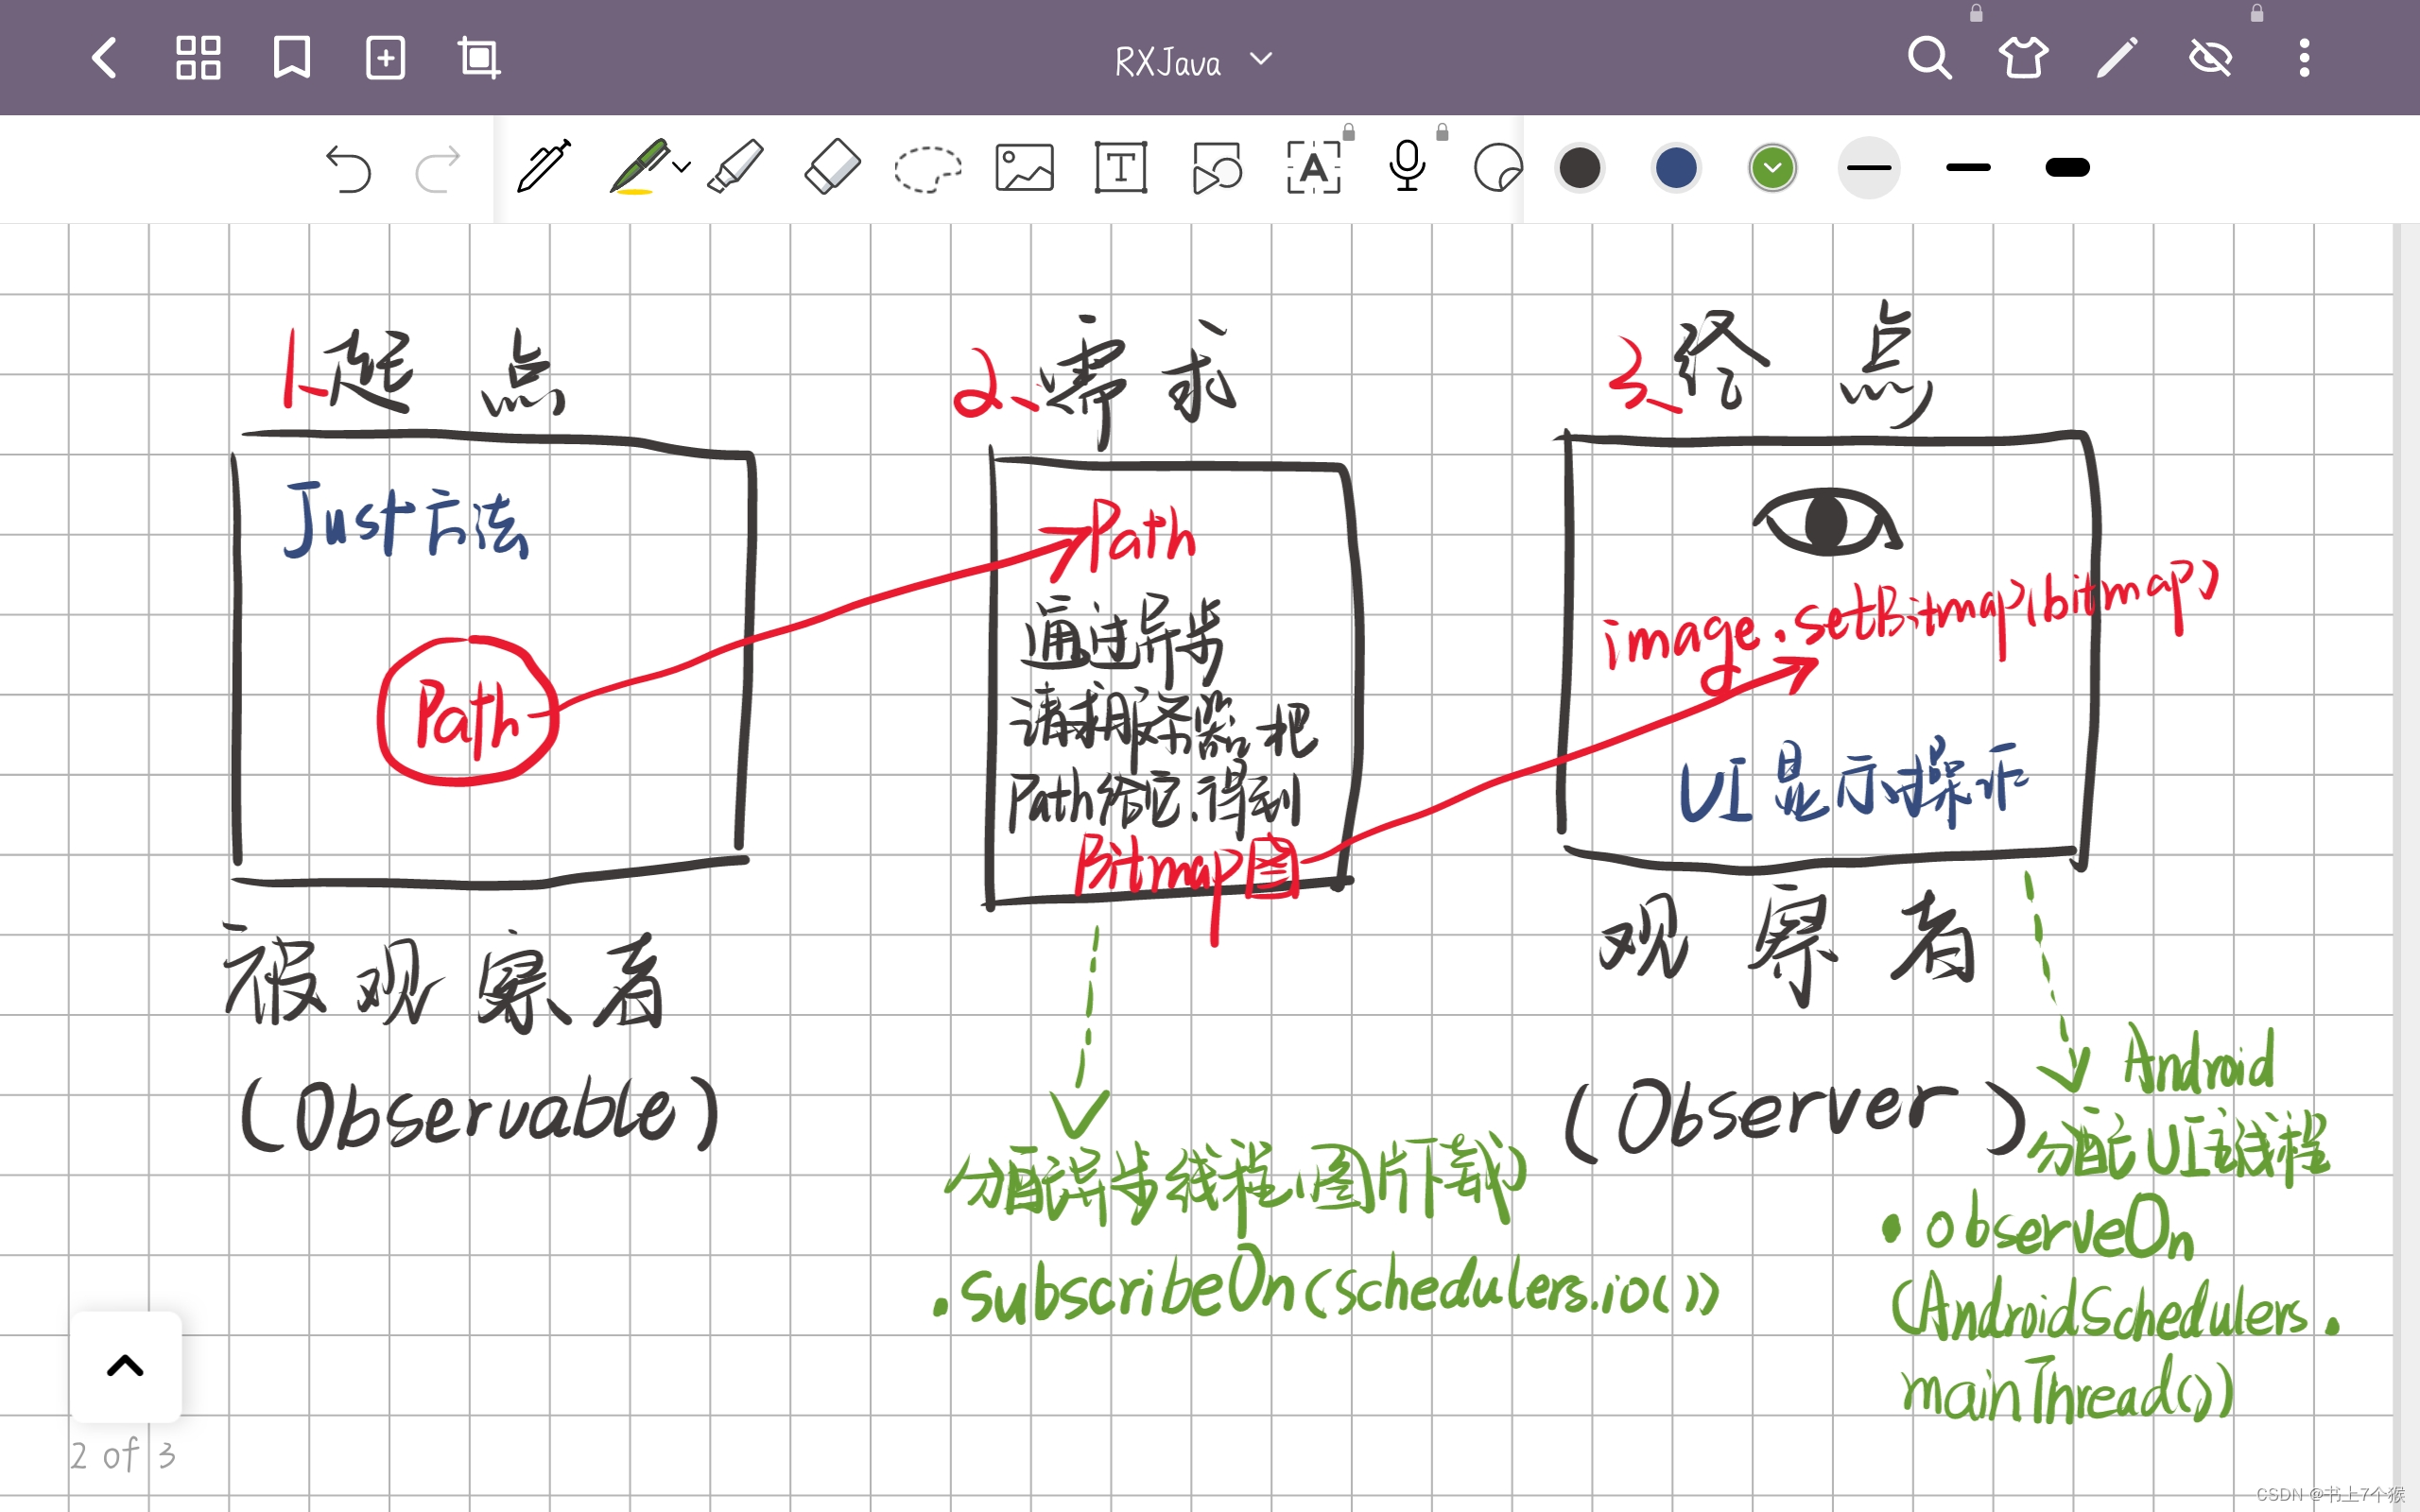 RXJava
T
A
1、起点
2、需求
3、终点
Just方法
Path
Path
通过异步
请求服务器把
Path给它.得到
Bitmap图
image.setBitmap(bitmap)
UI显示操作
被观察者
(Observable)
观察者
(Observer)
分配异步线程(图片下载)
.subscribeOn(Schedulers.io())
Android
分配UI主线程
.observeOn
(AndroidSchedulers.
mainThread())
2 of 3
CSDN @书上7个猴